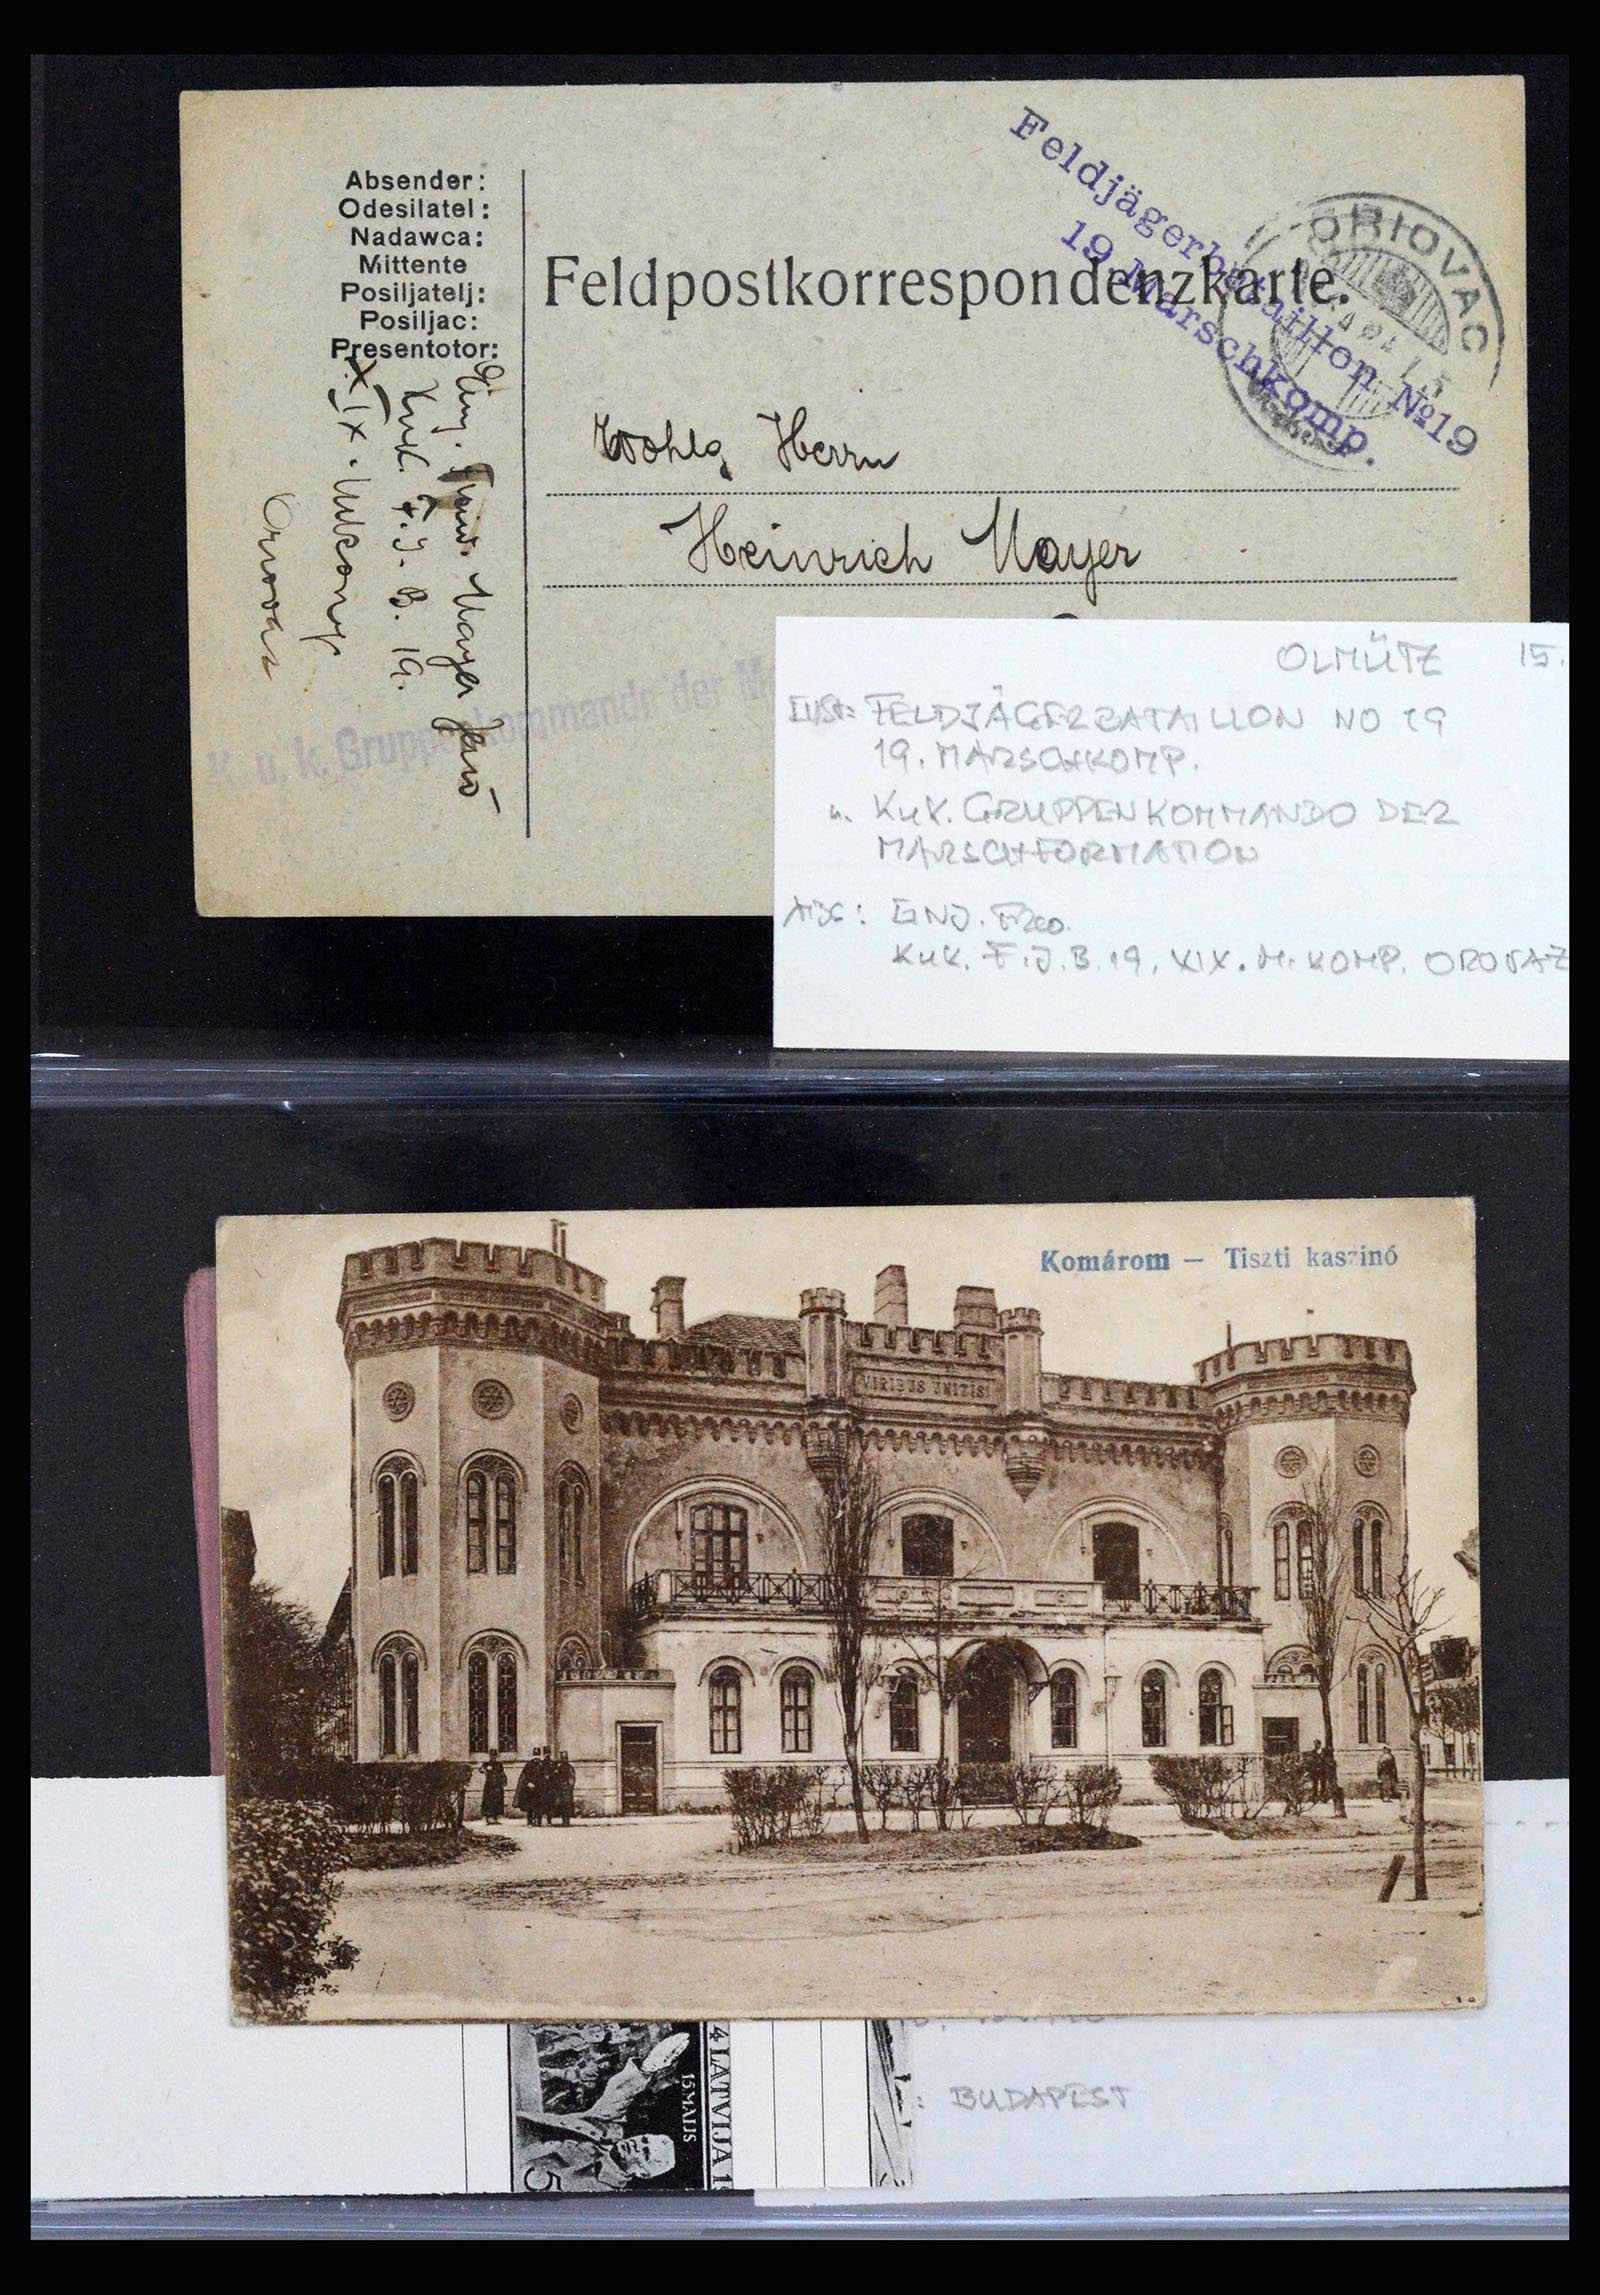 Absender:
Odesilatel:
Nadawca:
Mittente
Posiljatelj:
Posiljac:
Presentotor:
Feldpostkorrespondenzkarte.
Feldjägerbataillon №19
19. Marschkomp.
ORIOVAC
Herrn
Heinrich Mayer
Mayer Jenő
K.u.K. F.J.B. 19.
XIX.
K. u. k. Gruppenkommando der
OLMÜTZ 15.
FELDJÄGERBATAILLON NO 19
19. MARSCHKOMP.
u. KuK. GRUPPENKOMMANDO DER
MARSCHFORMATION
ABS: EINJ. FREO.
KuK. F.J.B. 19. XIX. M. KOMP. OROVAZ
Komárom — Tiszti kaszinó
VIRIBUS UNITIS
4 LATVIJA 1
15. MAIJS
5
: BUDAPEST